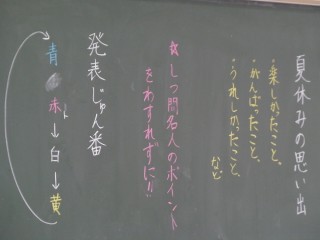 夏休みの思い出
・楽しかったこと、
・がんばったこと、
・うれしかったこと、
など
☆しつ問名人のポイント
をわすれずに!!
発表じゅん番
青 赤→白→黄